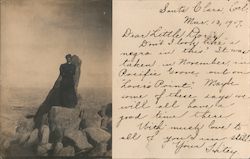 Santa Clara Cal.
Mar. 13, 1907.
Dear Little
Don't I look like a
negra in this? It was
taken in November, in
Pacific Grove, out on
Lovers Point. Maybe
one of these days we
will all have a
good time there.
With much love to
all of you, I'm still
Your Sister